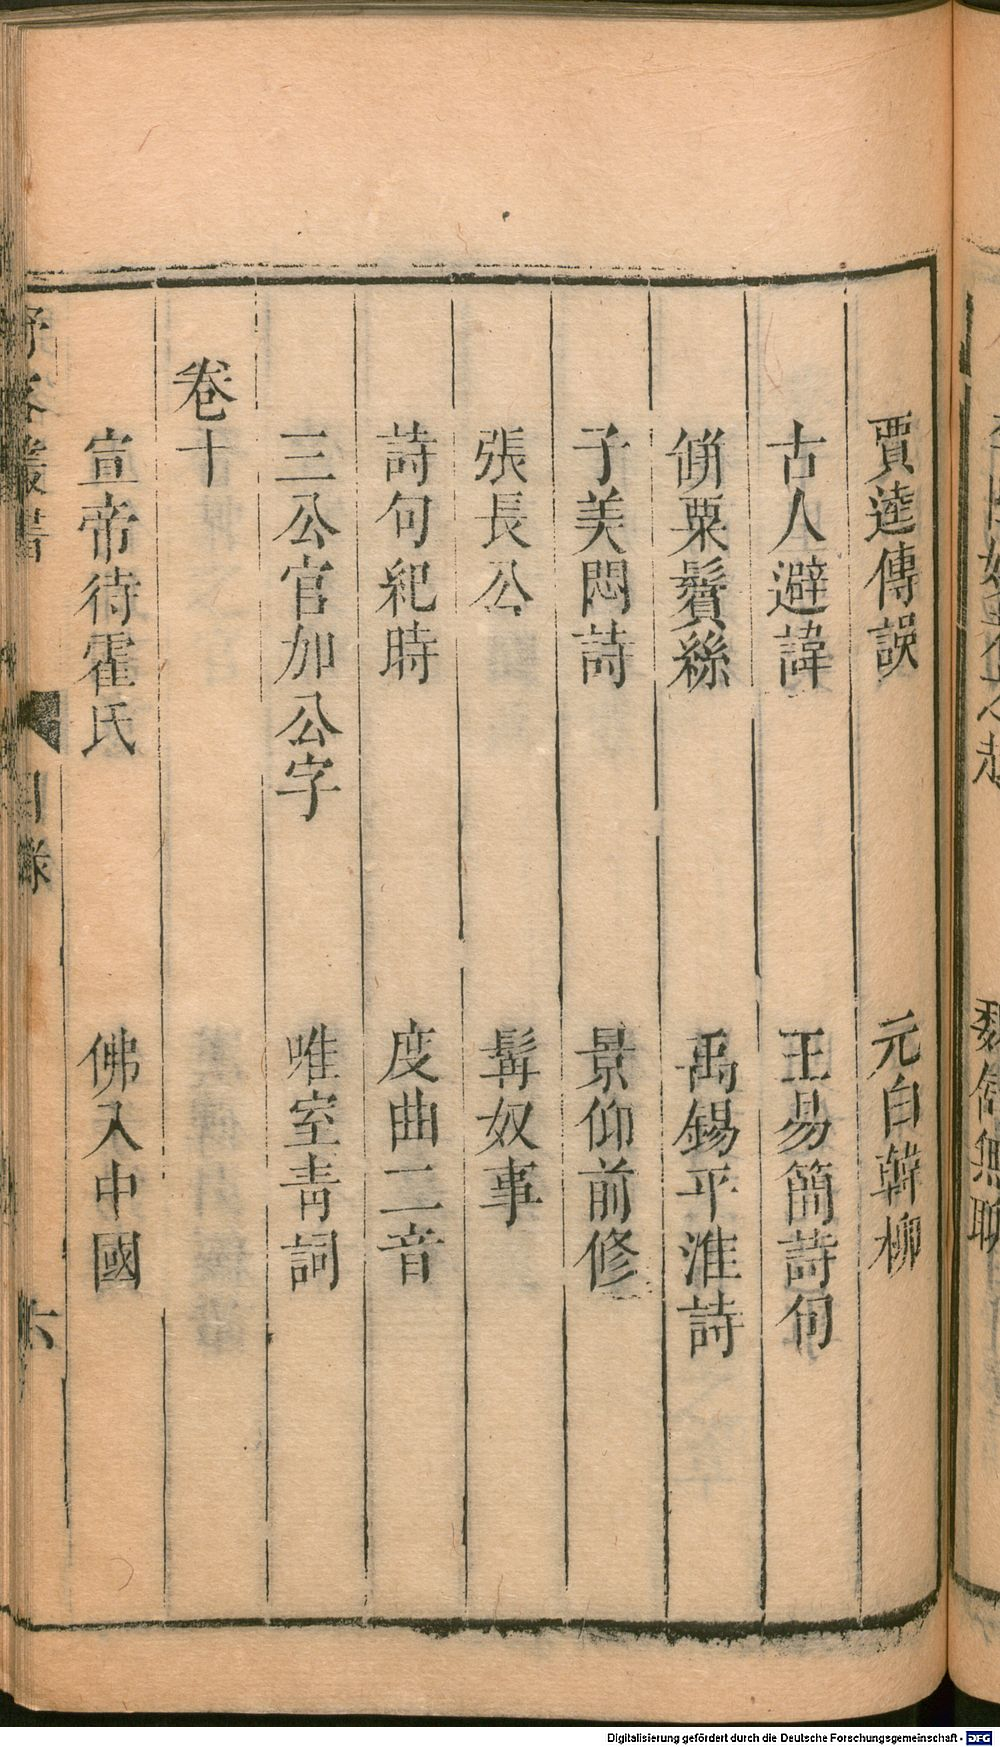 賈逵傳誤 元自韓柳
古人避諱 王易簡詩句
缾粟鬢絲 禹錫平淮詩
子美悶詩 景仰前修
張長公 髯奴事
詩句紀時 度曲二音
三公官加公字 唯室青詞
卷十
宣帝待霍氏 佛入中國
野客叢書 目錄 六
Digitalisierung gefördert durch die Deutsche Forschungsgemeinschaft - DFG